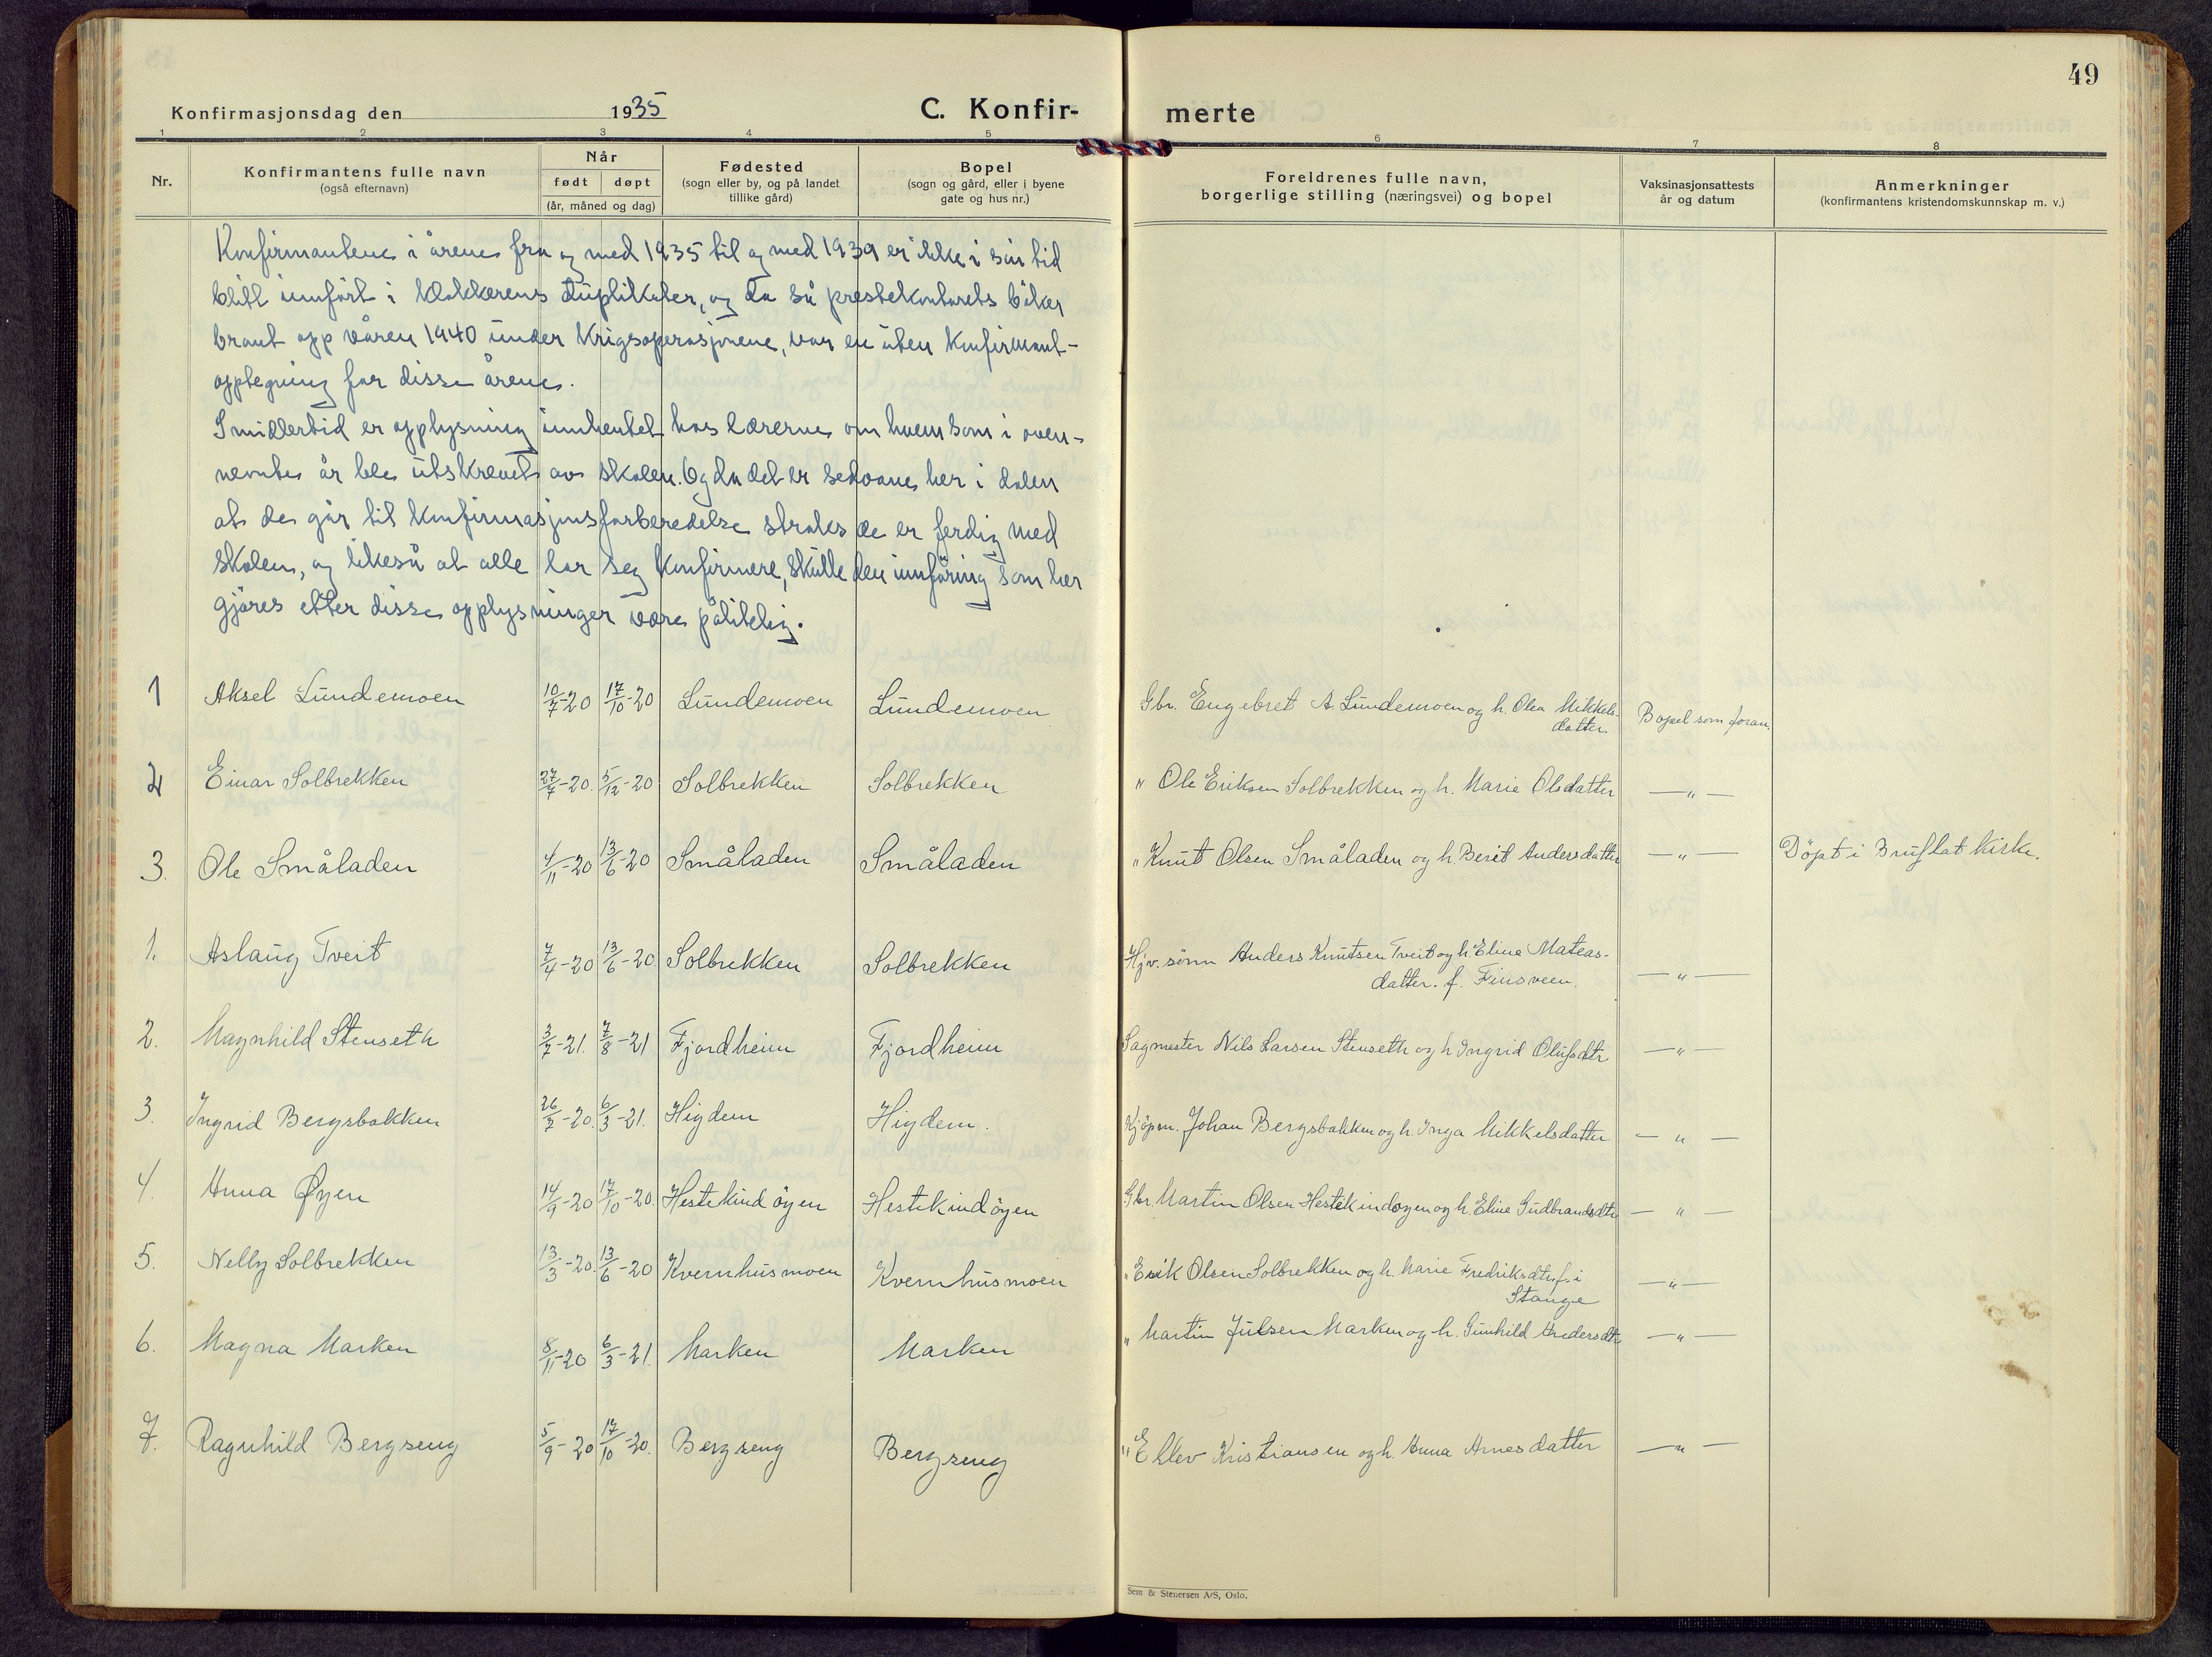 49
Konfirmasjonsdag den 1935 C. Konfir- merte
1 2 3 4 5 6 7 8
Nr. Konfirmantens fulle navn (også efternavn) Når født døpt (år, måned og dag) Fødested (sogn eller by, og på landet tillike gård) Bopel (sogn og gård, eller i byene gate og hus nr.) Foreldrenes fulle navn, borgerlige stilling (næringsvei) og bopel Vaksinasjonsattests år og datum Anmerkninger (konfirmantens kristendomskunnskap m. v.)
Konfirmantene i årene fra og med 1935 til og med 1939 er ikke i sin tid
blitt innført i klokkerens duplikater, og da så prestekontorets bøker
brant opp våren 1940 under krigsoperasjonene, var en uten konfirmant-
opptegning for disse årene.
Imidlertid er opplysning innhentet hos lærerne om hvem som i oven-
nevnte år ble utskrevet av skolen. Og da det er sedvane her i dalen
at de går til konfirmasjonsforberedelse straks de er ferdig med
skolen, og likeså at alle lar seg konfirmere, skulle den innføring som her
gjøres etter disse opplysninger være pålitelig.
1 Aksel Lundemoen 10/7-20 17/10-20 Lundemoen Lundemoen Gbr. Engebret A. Lundemoen og h. Olea Mikkels- Bopel som foran.
datter.
2 Einar Solbrekken 27/7-20. 5/12-20 Solbrekken Solbrekken " Ole Eriksen Solbrekken og h. Marie Olsdatter — " —
3. Ole Småladen 4/11-20 13/6-20 Småladen Småladen " Knut Olsen Småladen og h. Berit Andersdatter — " — Döpt i Bruflat kirke.
1. Aslaug Tveit 7/4-20 13/6-20 Solbrekken Solbrekken Hjv. sönn Anders Knutsen Tveit og h. Eline Mateas-
datter. f. Finsveen. — " —
2. Magnhild Stenseth 3/7-21. 7/8-21 Fjordheim Fjordheim Sagmester Nils Larsen Stenseth og h Ingrid Olufsdtr — " —
3. Ingrid Bergsbakken 26/7-20. 6/3-21. Higdem Higdem. Kjöpm. Johan Bergsbakken og h. Inga Mikkelsdatter — " —
4. Anna Øyen 14/9-20 17/10-20. Hestekindöyen Hestekindöyen Gbr. Martin Olsen Hestekindøyen og h. Eline Gudbrandsdtr — " —
5. Nelly Solbrekken 13/3-20. 13/6-20 Kvernhusmoen Kvernhusmoen " Erik Olsen Solbrekken og h. Marie Fredriksdtr f. i — " —
Stange
6. Magna Marken 8/11-20 6/3-21. Marken Marken " Martin Julsen Marken og h. Gunhild Andersdtr — " —
7. Ragnhild Bergseng 5/9-20 17/10-20. Bergseng Bergseng " Ellev Kristiansen og h. Anna Arnesdatter — " —
Sem & Stenersen A/S, Oslo.